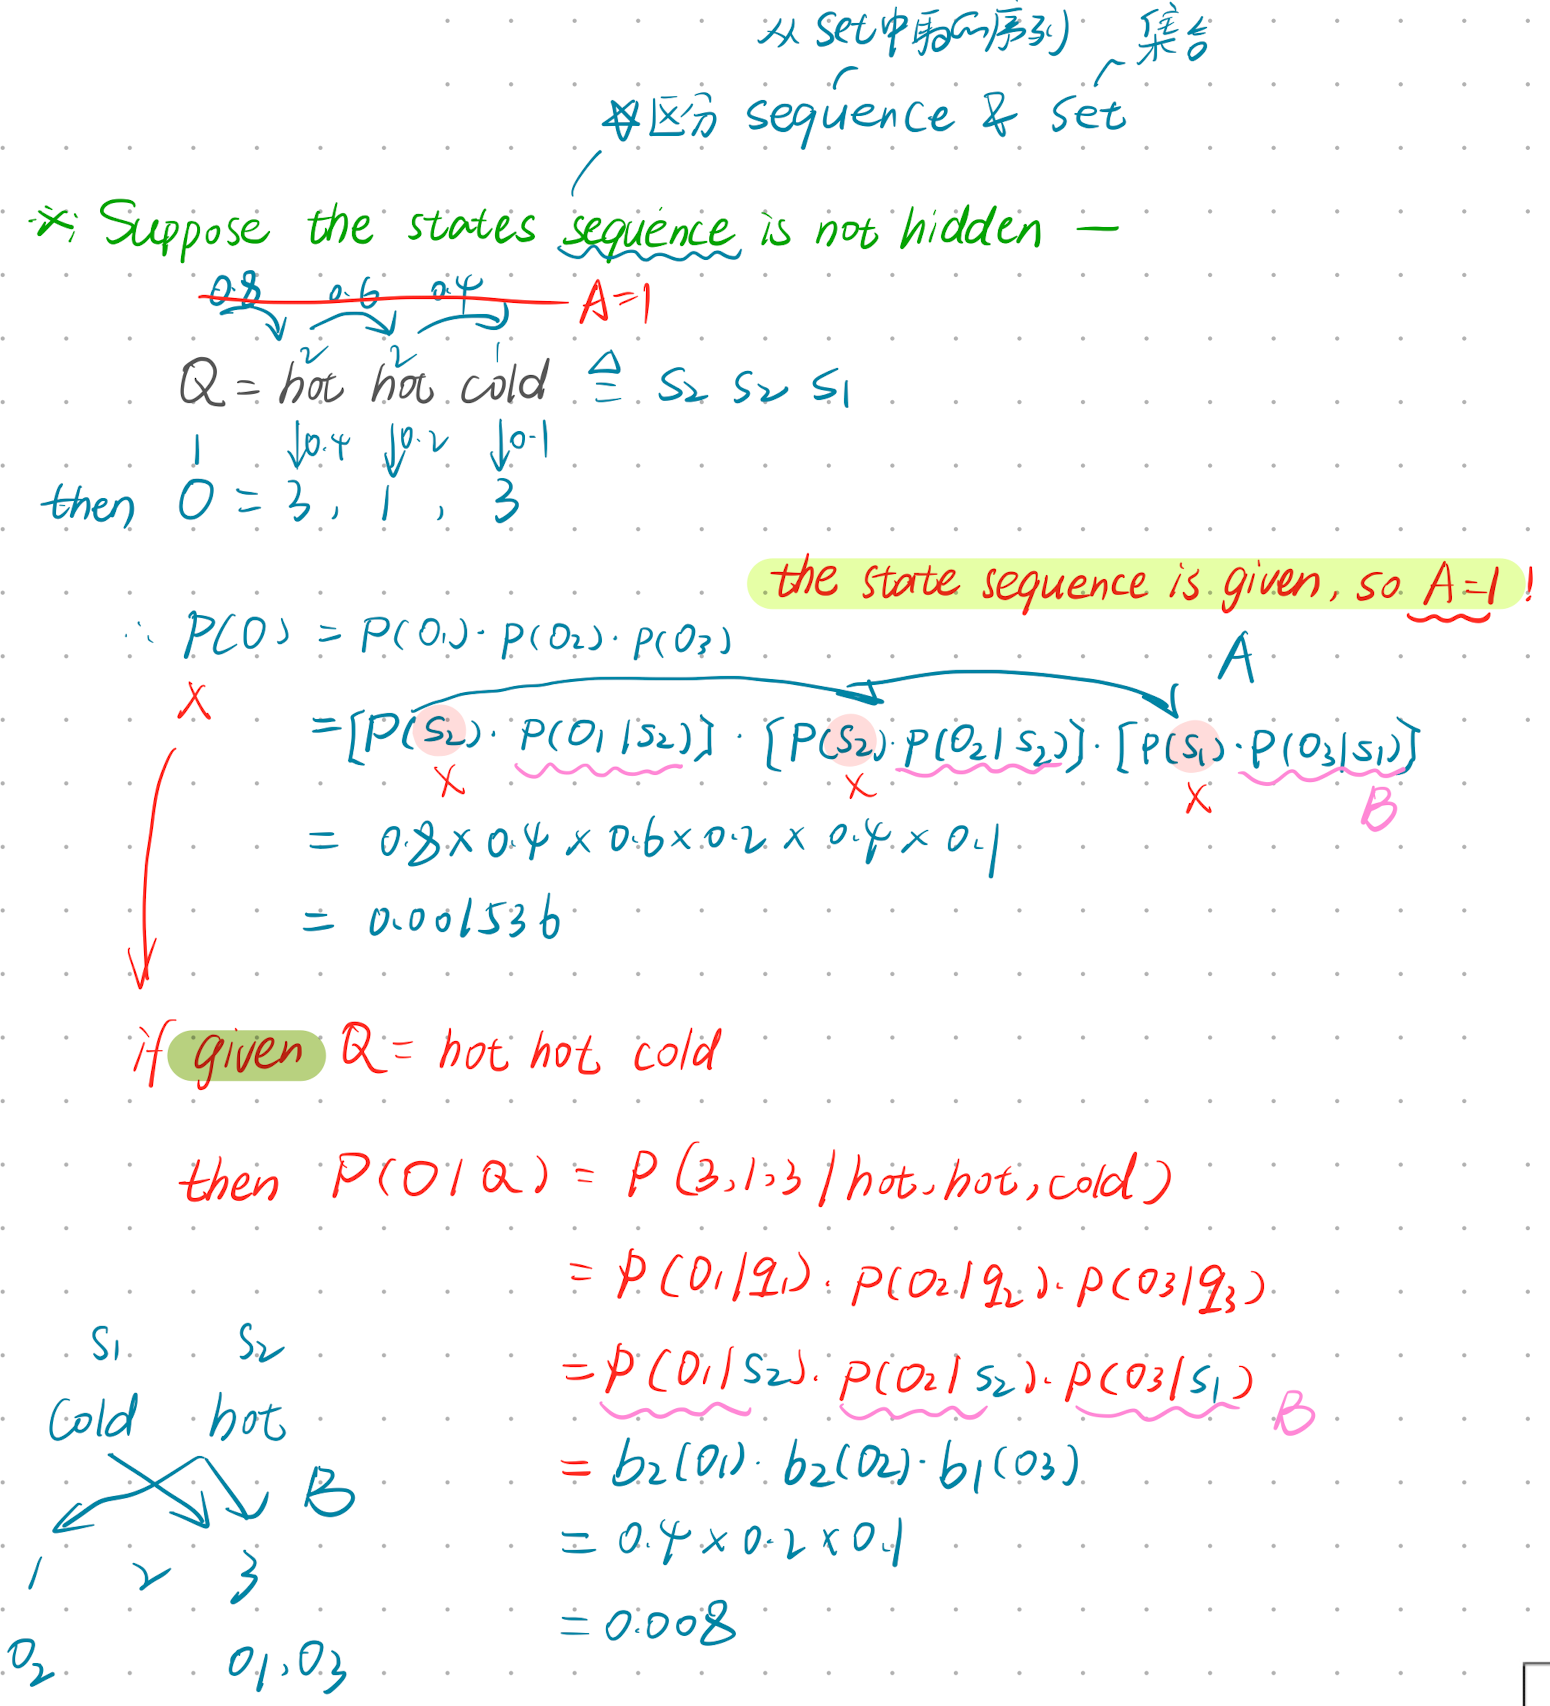 从 set中取的序列 集合
☆区分 sequence & set
※: Suppose the states sequence is not hidden —
0.8 0.6 0.4 A=1
2 2 1
Q = hot hot cold ≜ S2 S2 S1
↓0.4 ↓0.2 ↓0.1
then O = 3, 1, 3
the state sequence is given, so A=1!
∴ P(O) = P(O1)·P(O2)·P(O3)
A
X
=[P(S2)·P(O1|S2)]·[P(S2)·P(O2|S2)]·[P(S1)·P(O3|S1)]
X X X B
= 0.8×0.4×0.6×0.2×0.4×0.1
= 0.001536
if given Q = hot hot cold
then P(O|Q) = P(3,1,3|hot,hot,cold)
= P(O1|q1)·P(O2|q2)·P(O3|q3)
= P(O1|S2)·P(O2|S2)·P(O3|S1) B
= b2(O1)·b2(O2)·b1(O3)
= 0.4×0.2×0.1
= 0.008
S1 S2
cold hot
B
1 2 3
O2 O1,O3